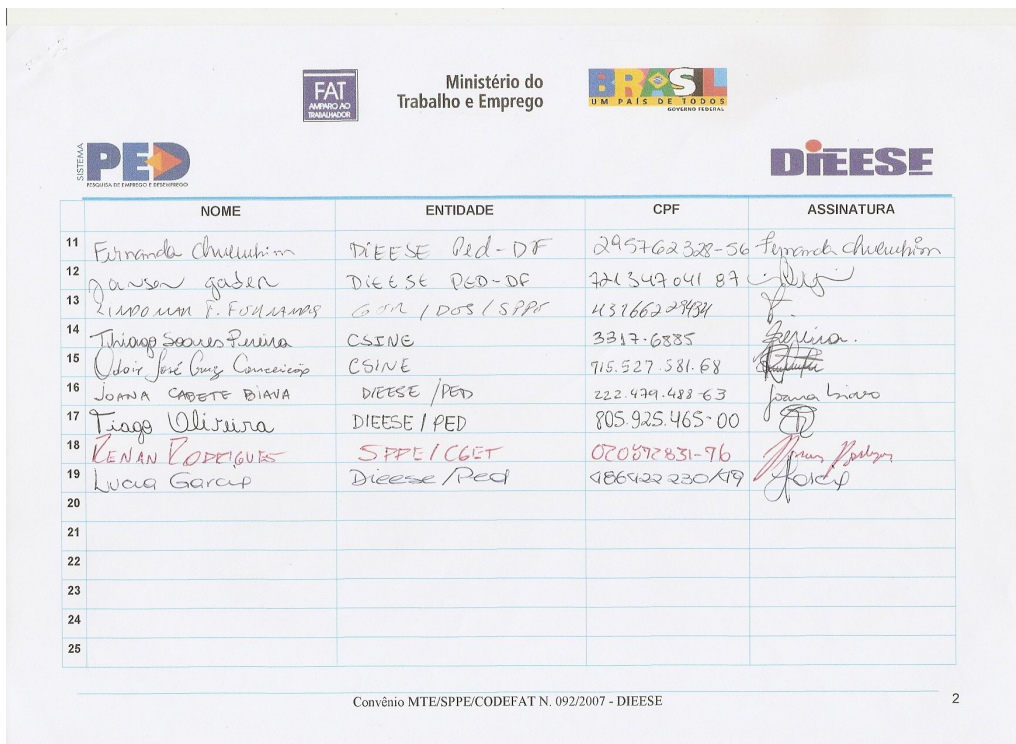 FAT
AMPARO AO
TRABALHADOR
Ministério do
Trabalho e Emprego
BRASIL
UM PAÍS DE TODOS
GOVERNO FEDERAL
SISTEMA
PED
PESQUISA DE EMPREGO E DESEMPREGO
DIEESE
NOME ENTIDADE CPF ASSINATURA
11 Fernanda DIEESE Ped-DF 295762328-56 Fernanda
12 Jansen DIEESE PED-DF 721 347 041 87
13 LINDOMAR F. / DOS / SPPE
14 Thiago Soares Pereira CSINE 3317-6885 Pereira.
15 Odair José Cruz Conceição CSINE 715.527.581.68
16 JOANA CABETE BIAVA DIEESE /PED 222.479.488-63 Joana Biava
17 Tiago Oliveira DIEESE/PED 805.925.465-00
18 RENAN RODRIGUES SPPE/CGET
19 Lucia Garcia Dieese/Ped 486422230/49
20
21
22
23
24
25
Convênio MTE/SPPE/CODEFAT N. 092/2007 - DIEESE
2